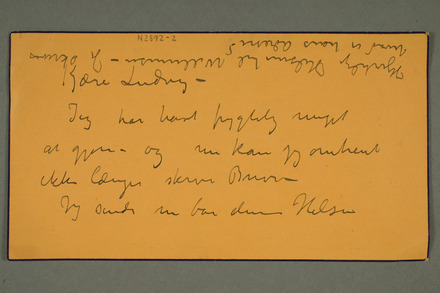 N2892-2
Kære Ludvig -
Jeg har havt frygtelig meget
at gjøre - og nu kan jeg omtrent
ikke længer skrive Breve -
Jeg sender nu bare denne Hilsen
Hjertelig Hilsen til
hvad er hans adresse?